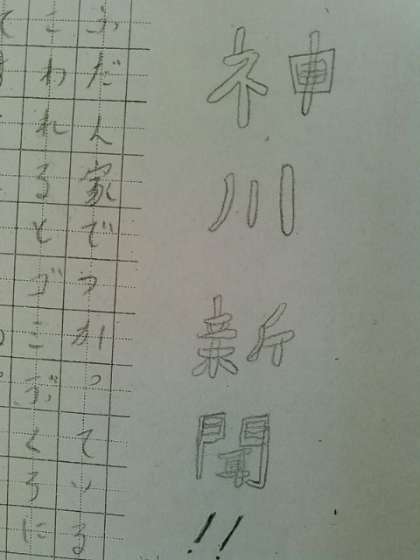 神川新聞!!
ふだん家でつかっている
こわれるとゴミぶくろに